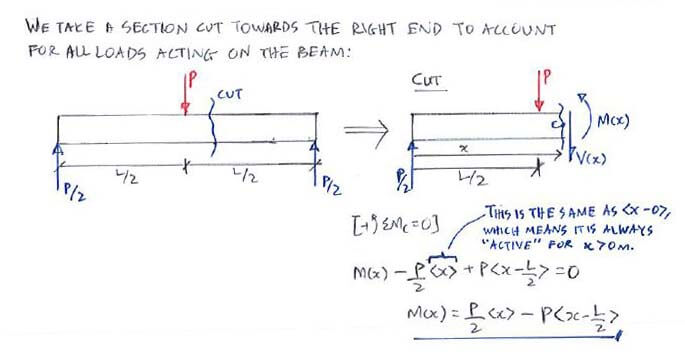 WE TAKE A SECTION CUT TOWARDS THE RIGHT END TO ACCOUNT
FOR ALL LOADS ACTING ON THE BEAM:
P
CUT
L/2
L/2
P/2
P/2
⇒
CUT
P
C
M(x)
x
V(x)
L/2
P/2
[+↺ ΣMc=0]
THIS IS THE SAME AS <x-0>,
WHICH MEANS IT IS ALWAYS
"ACTIVE" FOR x>0m.
M(x) - P/2 <x> + P<x-L/2> = 0
M(x) = P/2 <x> - P<x-L/2>